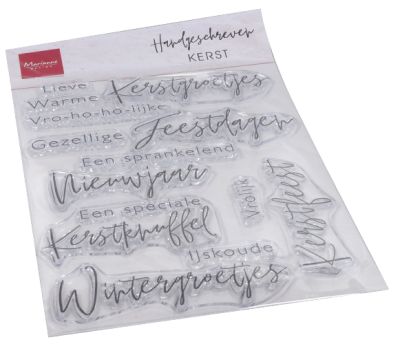 Marianne
DESIGN
Handgeschreven
KERST
Lieve
Warme
Kerstgroetjes
Vro-ho-ho-lijke
Gezellige
Feestdagen
Een sprankelend
Nieuwjaar
Vrolijk
Kerstfeest
Een speciale
Kerstknuffel
IJskoude
Wintergroetjes